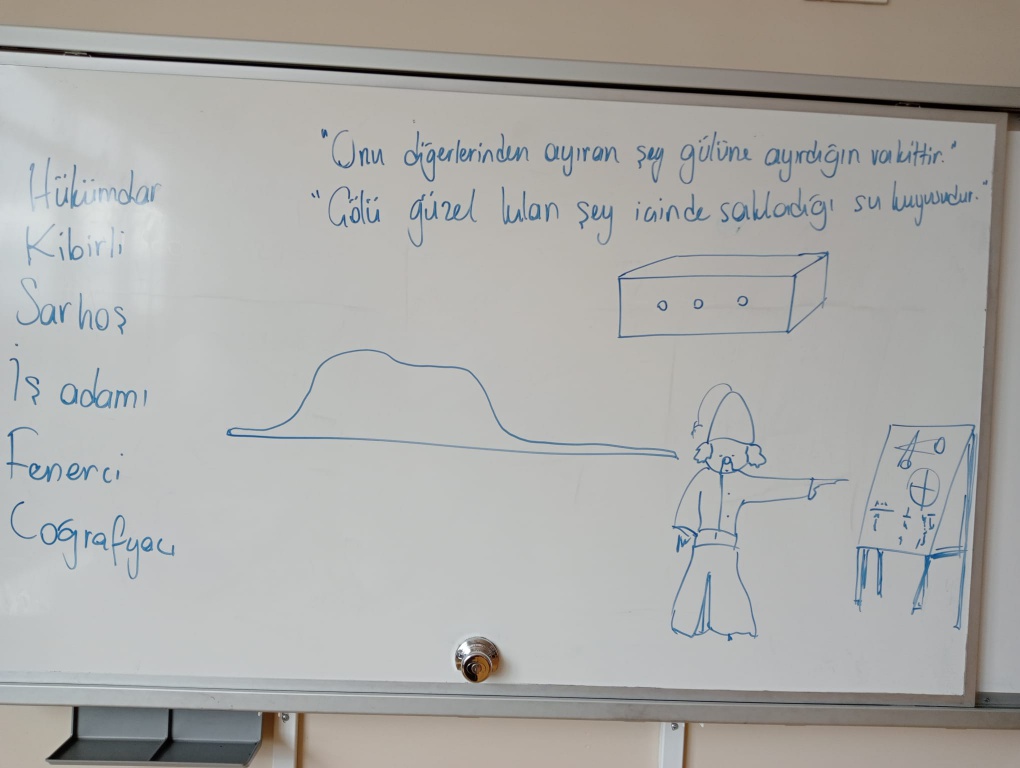 "Onu diğerlerinden ayıran şey gülüne ayırdığın vakittir."
"Gölü güzel kılan şey içinde sakladığı su kuyusudur."
Hükümdar
Kibirli
Sarhoş
İş adamı
Fenerci
Coğrafyacı